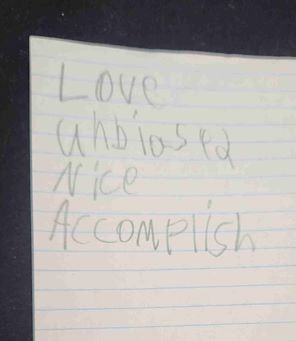 Love
Unbiased
Nice
Accomplish